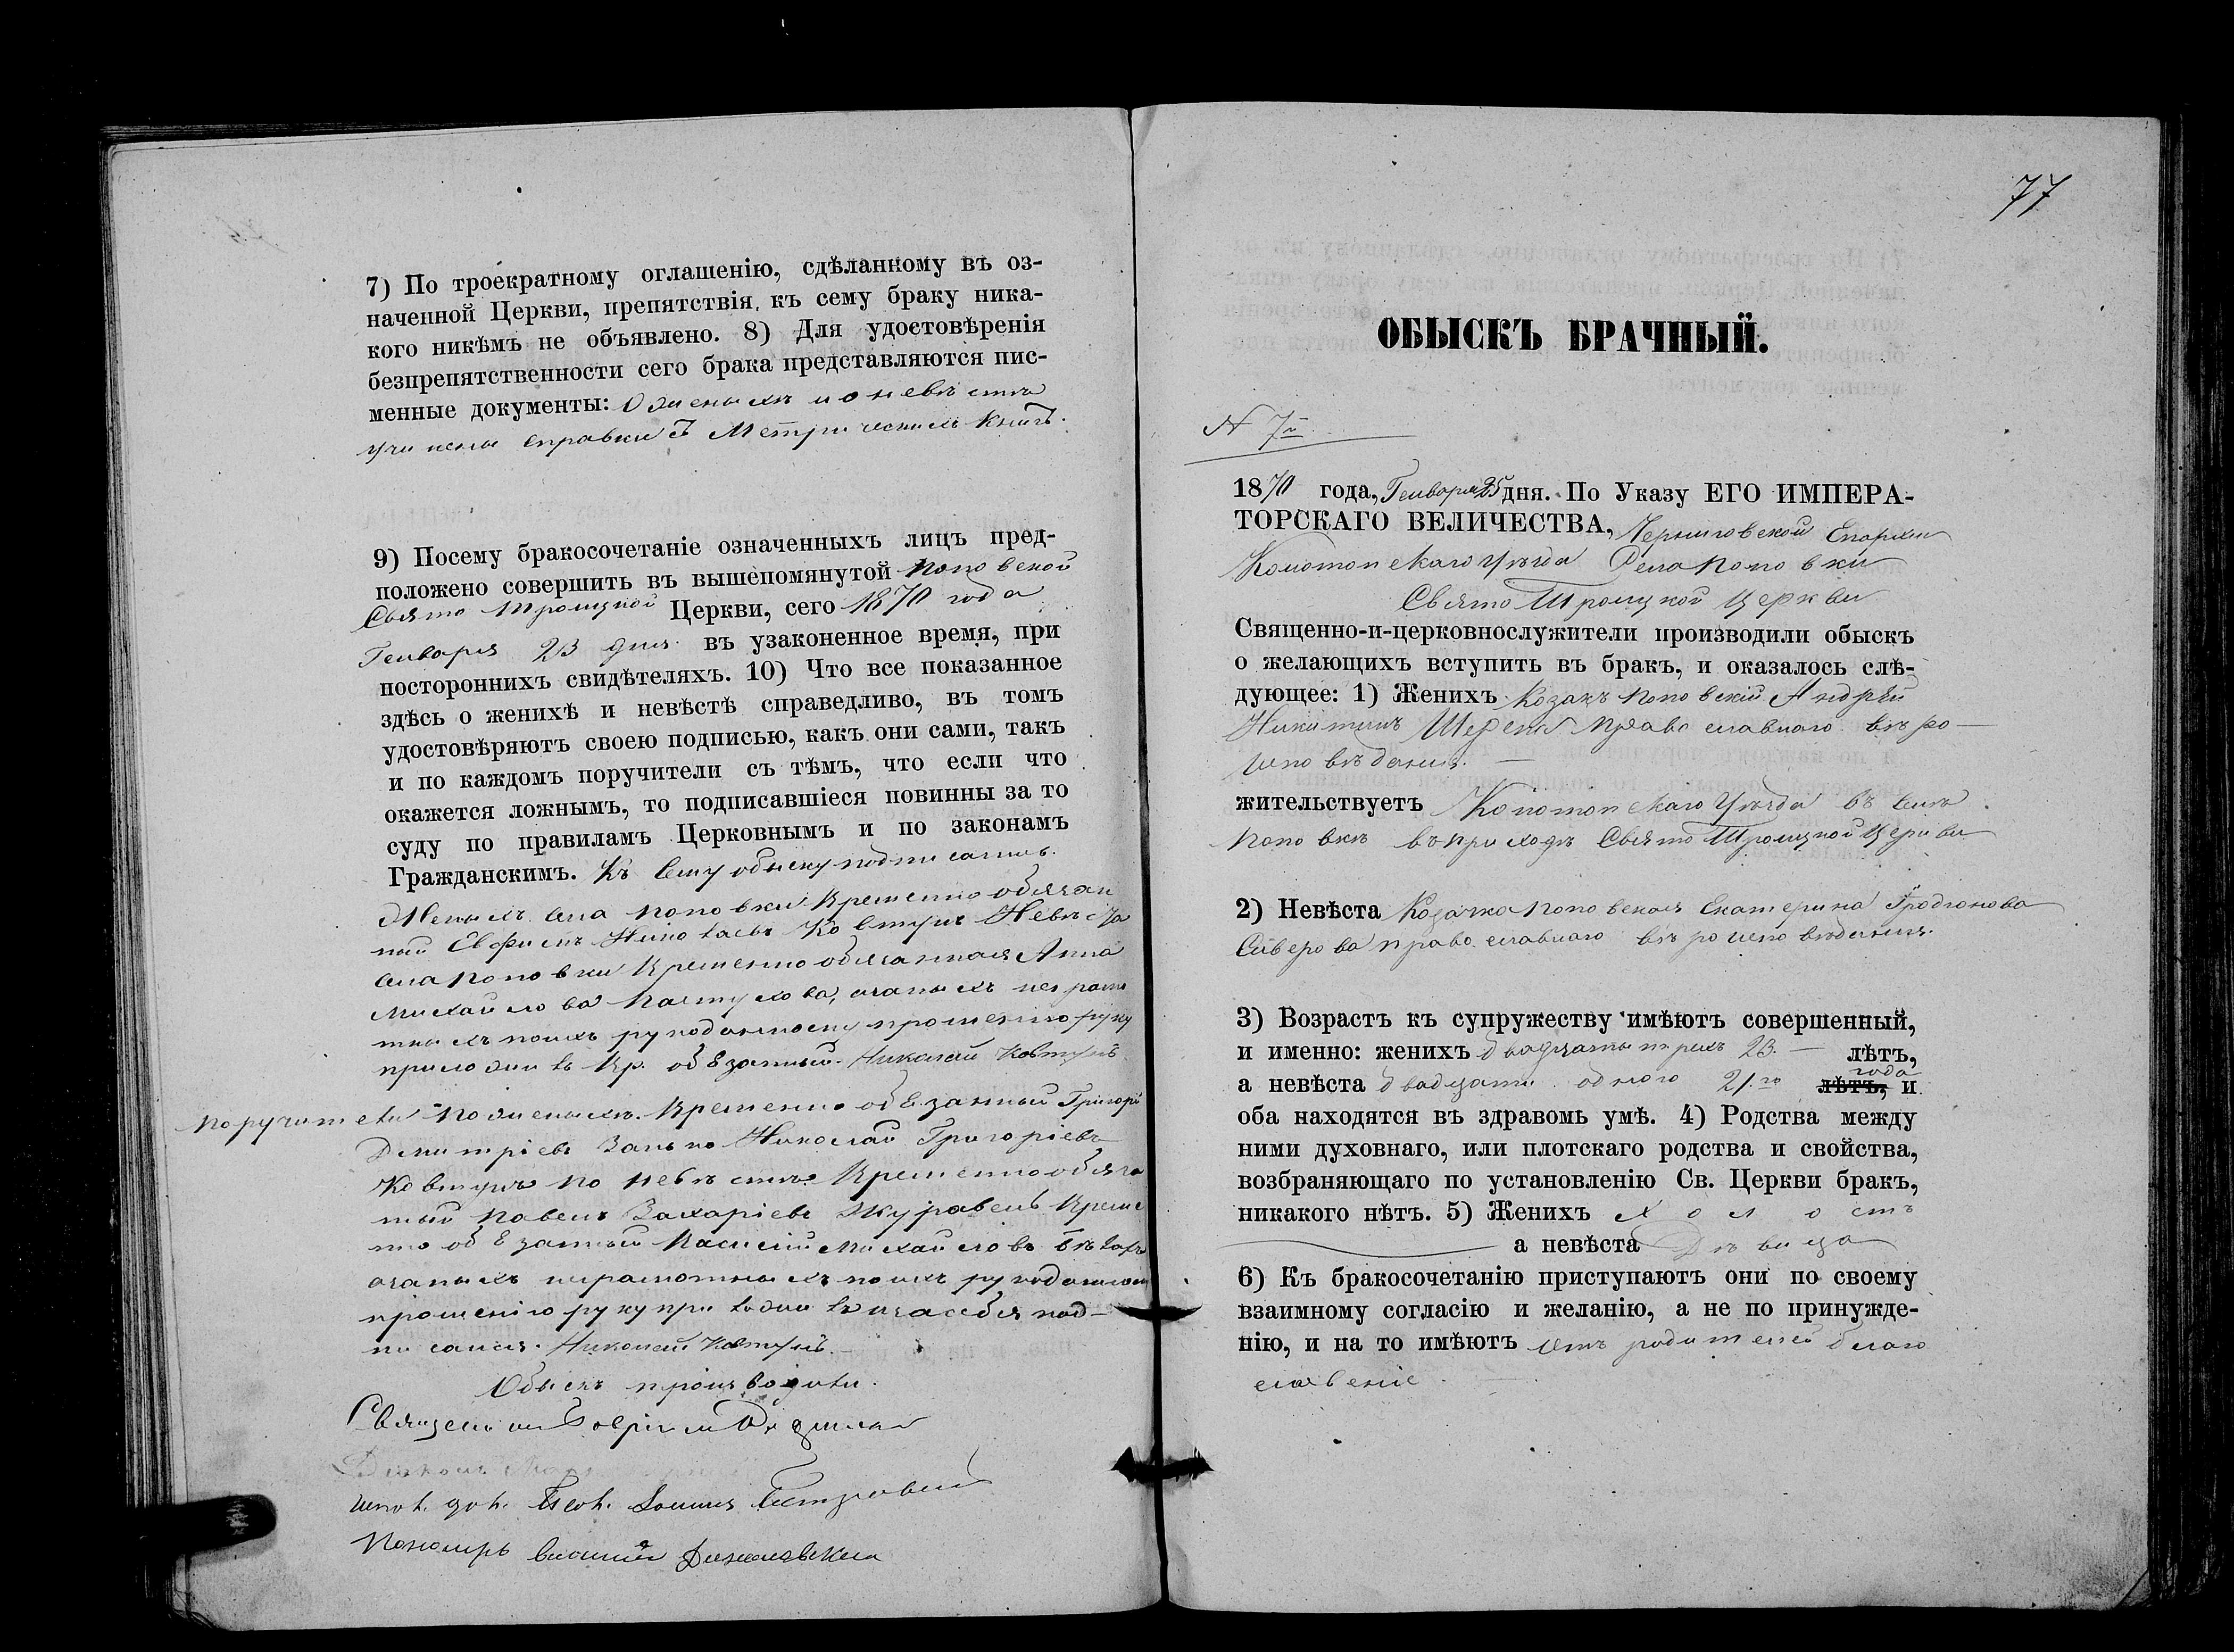 7) По троекратному оглашенію, сдѣланному въ оз-
наченной Церкви, препятствія къ сему браку ника-
кого никѣмъ не объявлено. 8) Для удостовѣренія
безпрепятственности сего брака представляются пис-
менные документы: О женихѣ и о невѣстѣ
учинены справки съ Метрическихъ Книгъ.
9) Посему бракосочетаніе означенныхъ лицъ пред-
положено совершить въ вышепомянутой Поповской
Свято Троицкой Церкви, сего 1870 года
Генваря 23 дня въ узаконенное время, при
постороннихъ свидѣтеляхъ. 10) Что все показанное
здѣсь о женихѣ и невѣстѣ справедливо, въ томъ
удостовѣряютъ своею подписью, какъ они сами, такъ
и по каждомъ поручители съ тѣмъ, что если что
окажется ложнымъ, то подписавшіеся повинны за то
суду по правиламъ Церковнымъ и по законамъ
Гражданскимъ. Къ сему обыску подписались
Женихъ села Поповки Временно обязан
ный Евфимъ Николаевъ Ковтунъ Невѣста
села Поповки Временно обязанная Анна
Михайлова Пастухова, а за ныхъ неграмо
тныхъ по ихъ рукоданному прошенію руку
приложилъ Вр. обязанный Николай Ковтунъ
Поручители По женихѣ Временно обязанный Григорій
Димитріевъ Занько Николай Григоріевъ
Ковтунъ по невѣстѣ Временно обяза
ный Павелъ Захаріевъ Журавель Време
нно обязанный Василій Михайловъ
а за ныхъ неграмотныхъ по ихъ рукоданному
прошенію руку приложилъ и за себя под-
писался Николай Ковтунъ.
Обыскъ производили.
Священникъ
Діаконъ
Пономарь
77
ОБЫСКЪ БРАЧНЫЙ.
N 7й
1870 года, Генваря 25 дня. По Указу ЕГО ИМПЕРА-
ТОРСКАГО ВЕЛИЧЕСТВА, Черниговской Епархіи
Конотопскаго Уѣзда Села Поповки
Свято Троицкой Церкви
Священно-и-церковнослужители производили обыскъ
о желающихъ вступить въ бракъ, и оказалось слѣ-
дующее: 1) Женихъ Козакъ Поповскій Андрей
Никитинъ Православнаго вѣро-
исповѣданія. —
жительствуетъ Конотопскаго Уѣзда въ селѣ
Поповкѣ въ приходѣ Свято Троицкой Церкви
2) Невѣста Козачка Поповская Екатерина Иродіонова
Сиверова православнаго вѣроисповѣданія.
3) Возрастъ къ супружеству имѣютъ совершенный,
и именно: женихъ двадцати трехъ 23. — лѣтъ,
а невѣста двадцати одного 21.го лѣтъ, года и
оба находятся въ здравомъ умѣ. 4) Родства между
ними духовнаго, или плотскаго родства и свойства,
возбраняющаго по установленію Св. Церкви бракъ,
никакого нѣтъ. 5) Женихъ холостъ
а невѣста Дѣвица
6) Къ бракосочетанію приступаютъ они по своему
взаимному согласію и желанію, а не по принужде-
нію, и на то имѣютъ отъ родителей благо
славеніе.